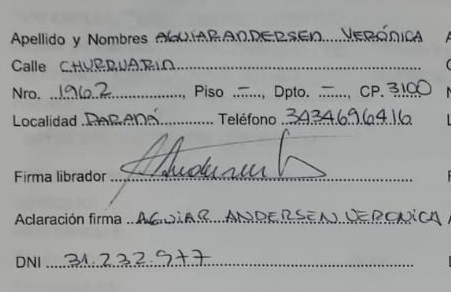 Apellido y Nombres AGUIAR ANDERSEN VERÓNICA
Calle CHURRUARIN
Nro. 1962, Piso -, Dpto. -, CP. 3100
Localidad PARANÁ Teléfono 3434696416
Firma librador Andersen
Aclaración firma AGUIAR ANDERSEN VERONICA
DNI 31.232.977